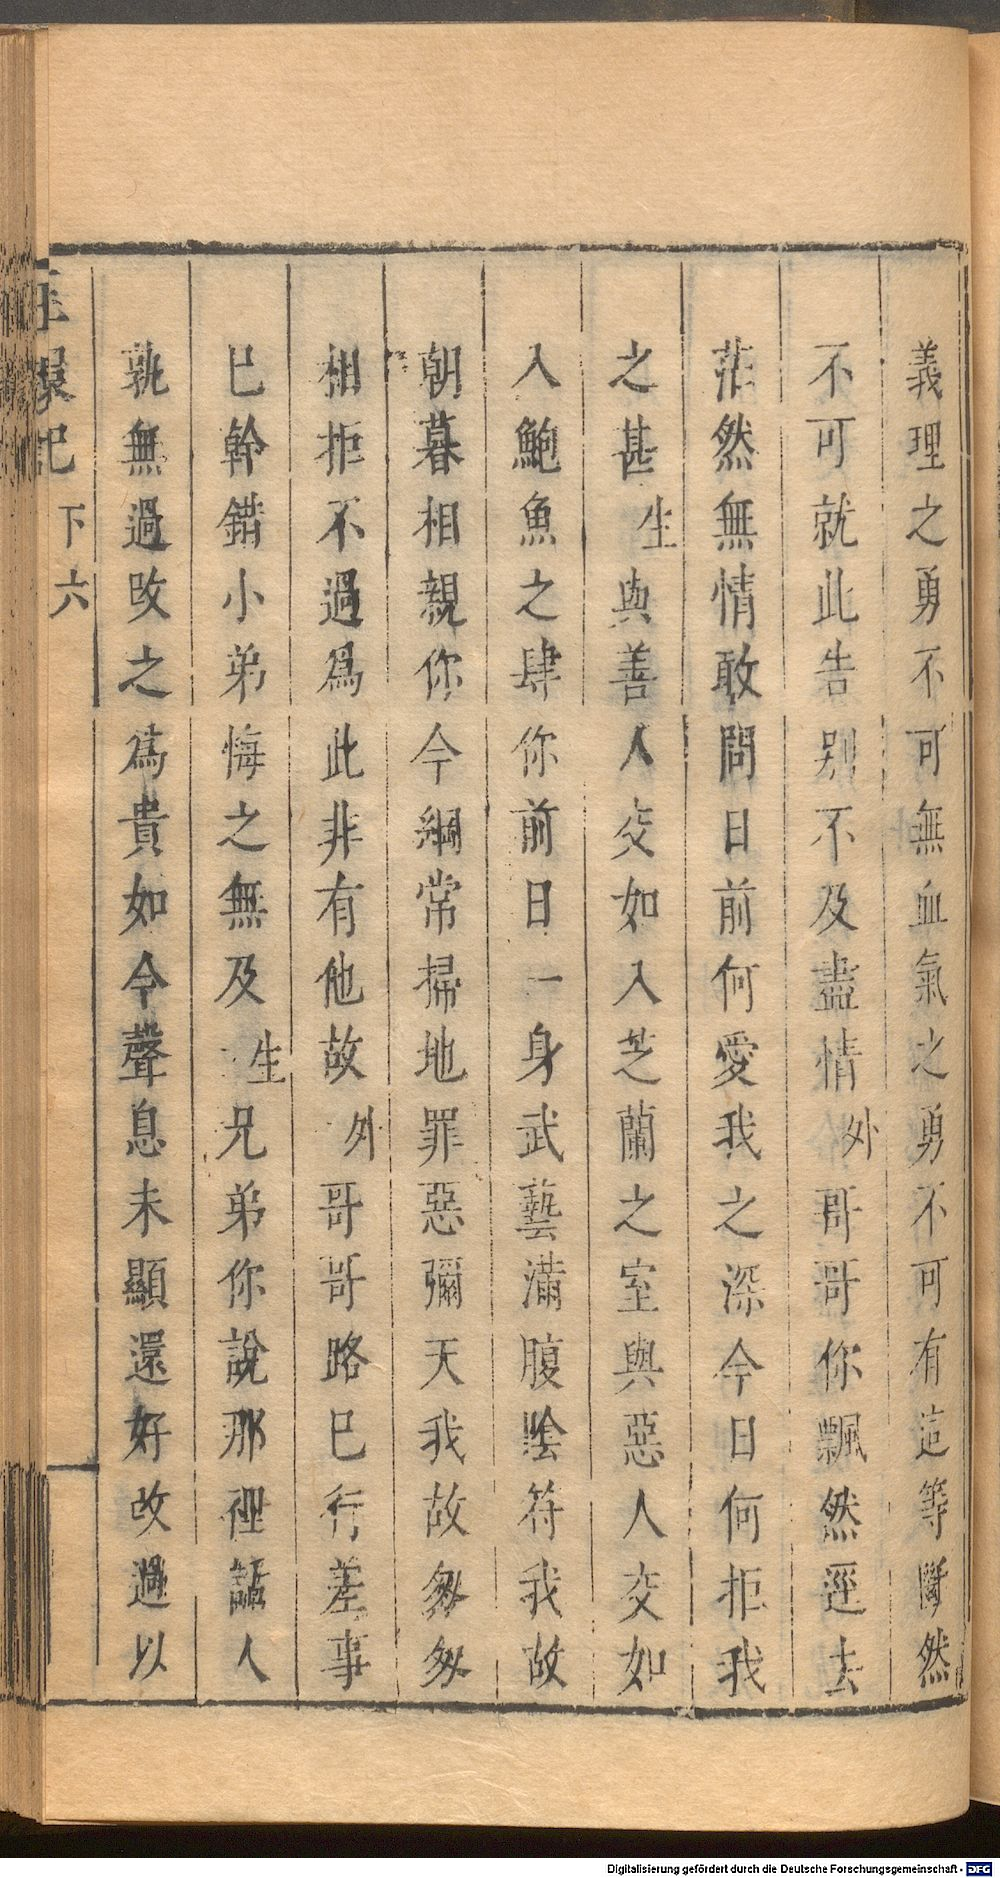 義理之勇不可無血氣之勇不可有這等斷然
不可就此告别不及盡情外哥哥你飄然逕去
茫然無情敢問日前何愛我之深今日何拒我
之甚生與善人交如入芝蘭之室與惡人交如
入鮑魚之肆你前日一身武藝滿腹陰符我故
朝暮相親你今綱常掃地罪惡彌天我故匆匆
相拒不過爲此非有他故外哥哥路已行差事
已幹錯小弟悔之無及生兄弟你說那裡話人
孰無過改之為貴如今聲息未顯還好改過以
玉環記
下六
Digitalisierung gefördert durch die Deutsche Forschungsgemeinschaft - DFG